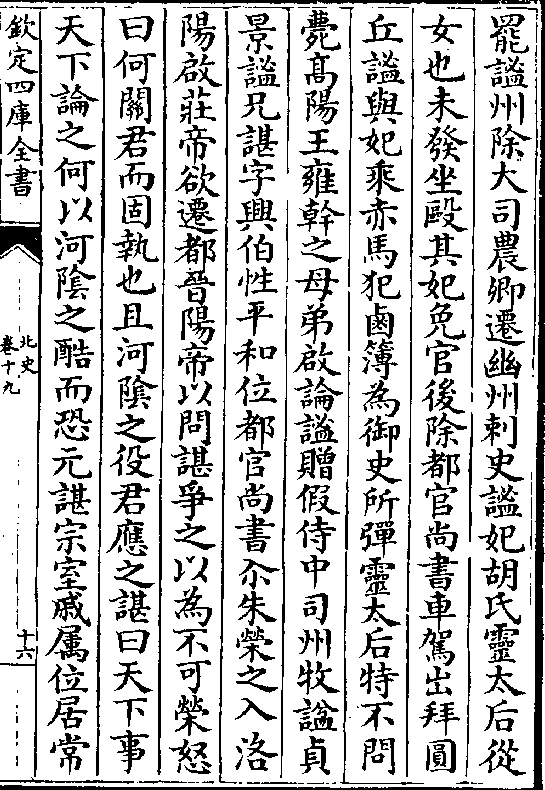 罷謐州除大司農卿遷幽州刺史謐妃胡氏靈太后從
女也未發坐毆其妃免官後除都官尚書車駕出拜圓
丘謐與妃乘赤馬犯鹵簿為御史所彈靈太后特不問
薨髙陽王雍幹之母弟啟論謐贈假侍中司州牧謚貞
景謐兄諶字興伯性平和位都官尚書尒朱榮之入洛
陽啟莊帝欲遷都晉陽帝以問諶爭之以為不可榮怒
曰何關君而固執也且河隂之役君應之諶曰天下事
天下論之何以河隂之酷而恐元諶宗室戚属位居常
欽定四庫全書
北史
卷十九
十六